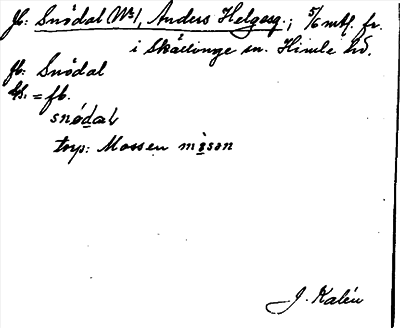 jb: Snödal (N:1), Anders Helgesg.; 5/6 mtl. fr.
i Skällinge sn. Himle hd.
fb: Snödal
= fb.
snödal
torp: Mossen mòsən
J. Kalén